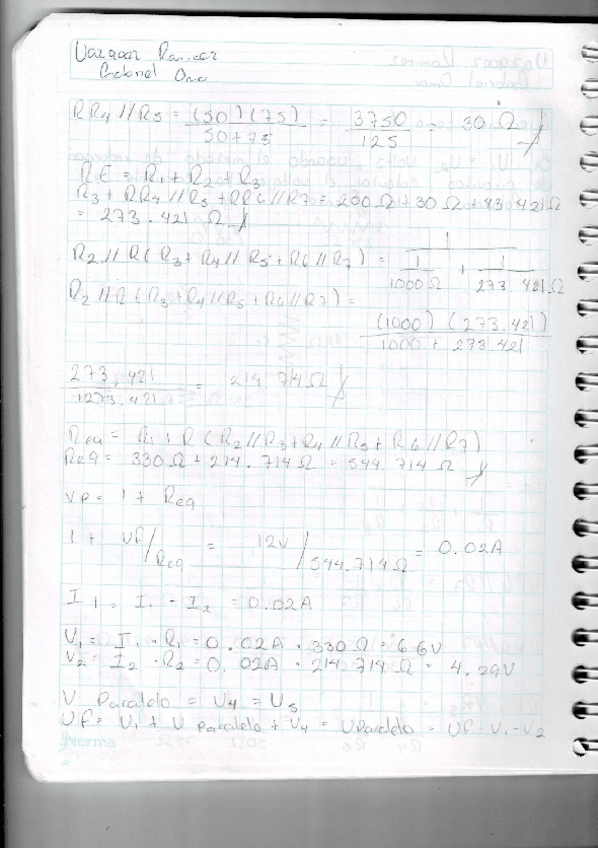 Vazquez Ramirez
Gabriel Omar
RR4 // R5 = (50)(75) / 50+75 = 3750 / 125 = 30 Ω
RE = R1 + R2 + R3
R3 + RR4 // R5 + RR6 // R7 = 200 Ω + 30 Ω + 43.421 Ω
= 273.421 Ω
R2 // R (R3 + R4 // R5 + R6 // R7) = 1 / 1/1000 Ω + 1/273.421 Ω
R2 // R (R3 + R4 // R5 + R6 // R7) =
(1000) (273.421) / 1000 + 273.421
273,421 / 1273.421 = 214.714 Ω
Req = R1 + R (R2 // R3 + R4 // R5 + R6 // R7)
Req = 330 Ω + 214.714 Ω = 544.714 Ω
VP = I + Req
I + Vf / Req = 12V / 544.714 Ω = 0.02A
I1 = I1 - I2 = 0.02A
V1 = I1 · R1 = 0.02A · 330 Ω = 6.6V
V2 = I2 · R2 = 0.02A · 214.714 Ω = 4.29V
V Paralelo = V4 = V5
Vf = V1 + V paralelo + V4 = VParalelo = Vf - V1 - V2
Norma